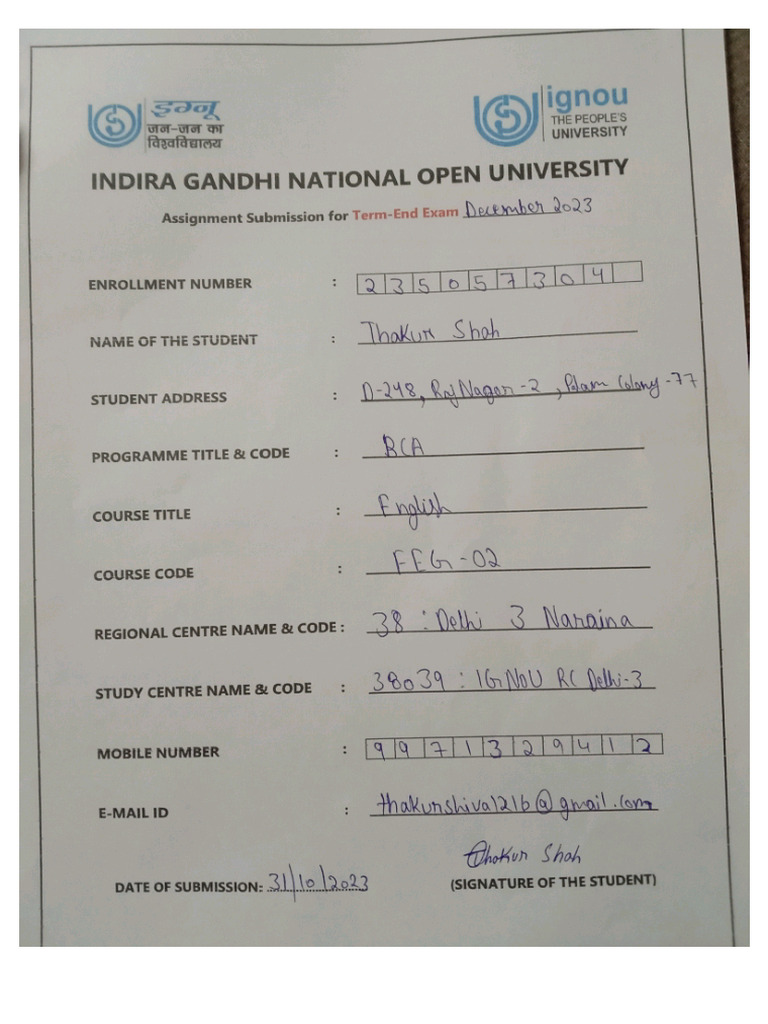 इग्नू
जन-जन का
विश्वविद्यालय
ignou
THE PEOPLE'S
UNIVERSITY
INDIRA GANDHI NATIONAL OPEN UNIVERSITY
Assignment Submission for Term-End Exam December 2023
ENROLLMENT NUMBER : 235057304
NAME OF THE STUDENT : Thakur Shah
STUDENT ADDRESS : D-248, Raj Nagar-2, Palam Colony-77
PROGRAMME TITLE & CODE : BCA
COURSE TITLE : English
COURSE CODE : FEG-02
REGIONAL CENTRE NAME & CODE : 38 : Delhi 3 Naraina
STUDY CENTRE NAME & CODE : 38039 : IGNOU RC Delhi-3
MOBILE NUMBER : 9971329412
E-MAIL ID : thakurshiva1216@gmail.com
Thakur Shah
DATE OF SUBMISSION: 31/10/2023 (SIGNATURE OF THE STUDENT)